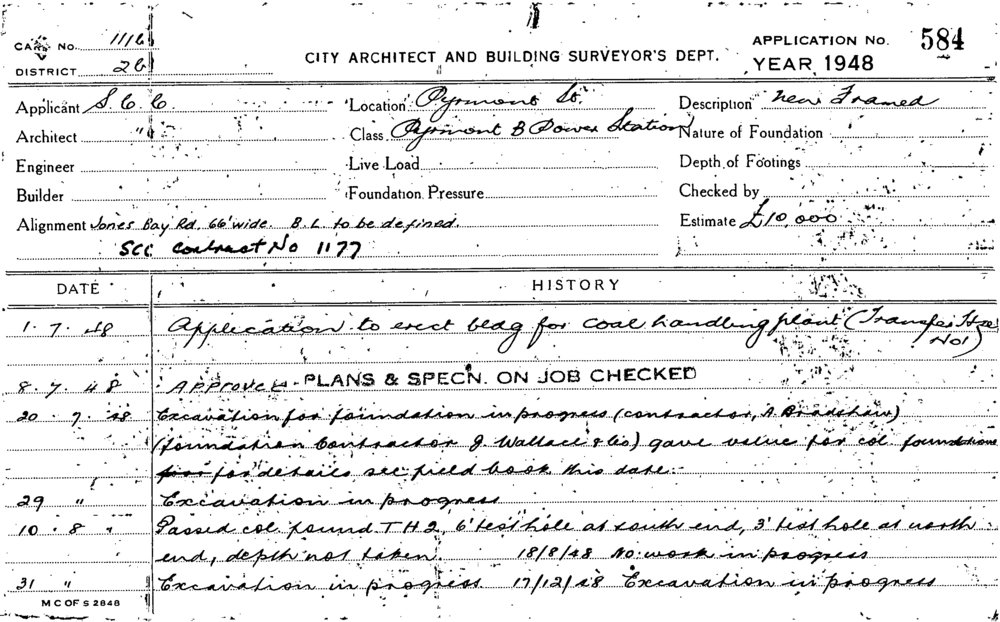 CARD No. 1116
CITY ARCHITECT AND BUILDING SURVEYOR'S DEPT.
APPLICATION No. 584
DISTRICT 26
YEAR 1948
Applicant S.C.C. Location Pyrmont St. Description New Framed
Architect " Class Pyrmont B Power Station Nature of Foundation
Engineer Live Load Depth of Footings
Builder Foundation Pressure Checked by
Alignment Jones Bay Rd. 66' wide. B.L. to be defined. Estimate £10,000
SCC Contract No 1177
DATE HISTORY
1.7.48 Application to erect bldg for coal handling plant (Transfer Hse No1)
8.7.48 Approved - PLANS & SPECN. ON JOB CHECKED
20.7.48 Excavation for foundation in progress (contractor, A Bradshaw)
(foundation Contractor J. Wallace & Co) gave value for col foundations
for details see field book this date.
29 " Excavation in progress
10.8 " Passed col. found T H 2, 6' test hole at south end, 3' test hole at north
end, depth not taken 18/8/48 No work in progress
31 " Excavation in progress 17/12/48 Excavation in progress
M C OF S 2848